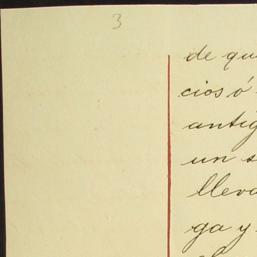 3
de qu
cios ó
antig
un s
lleva
ga y